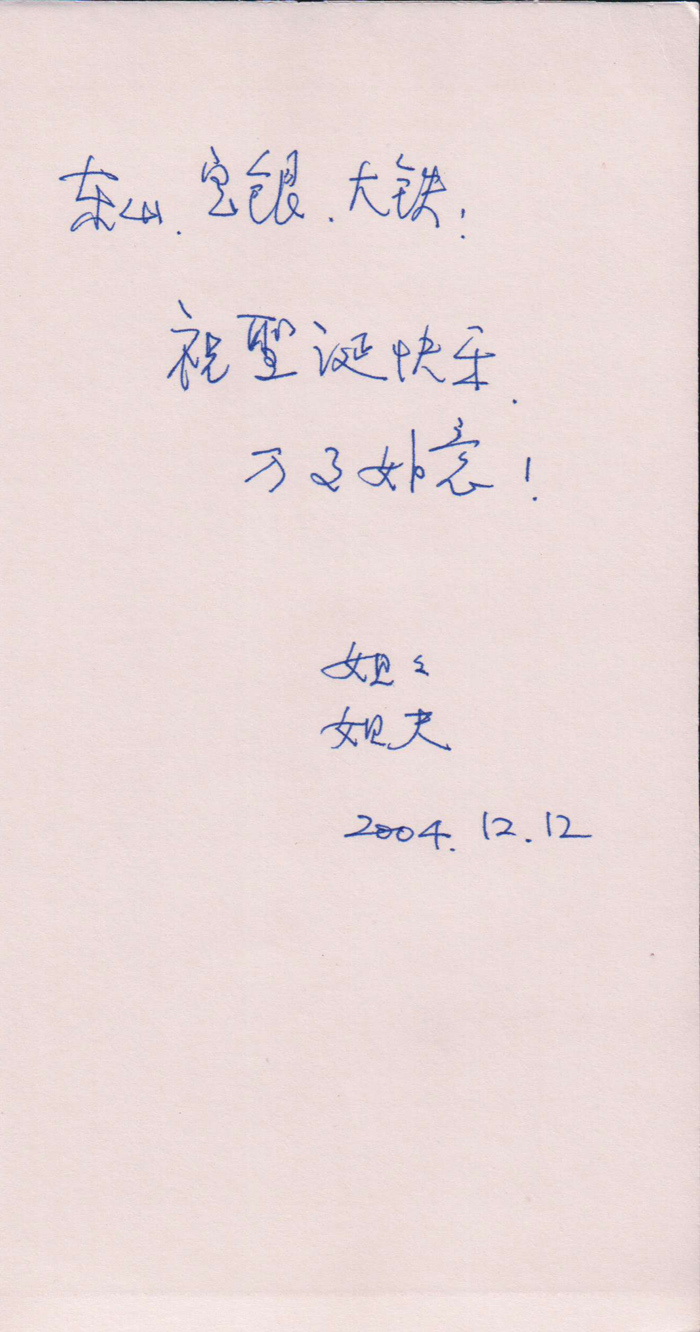 东山、宝银、大铁：
祝聖诞快乐、
万事如意！
姐々
姐夫
2004.12.12